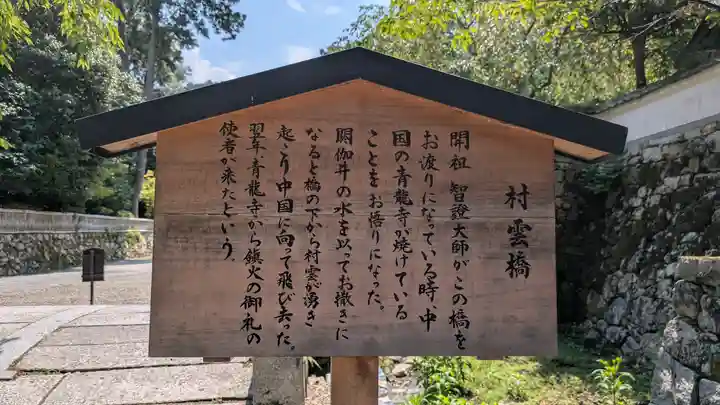 村雲橋
開祖 智證大師がこの橋を
お渡りになっている時、中
国の青龍寺が焼けている
ことをお悟りになった。
閼伽井の水を以ってお撒きに
なると橋の下から村雲が湧き
起こり中国に向って飛び去った。
翌年青龍寺から鎮火の御礼の
使者が来たという。